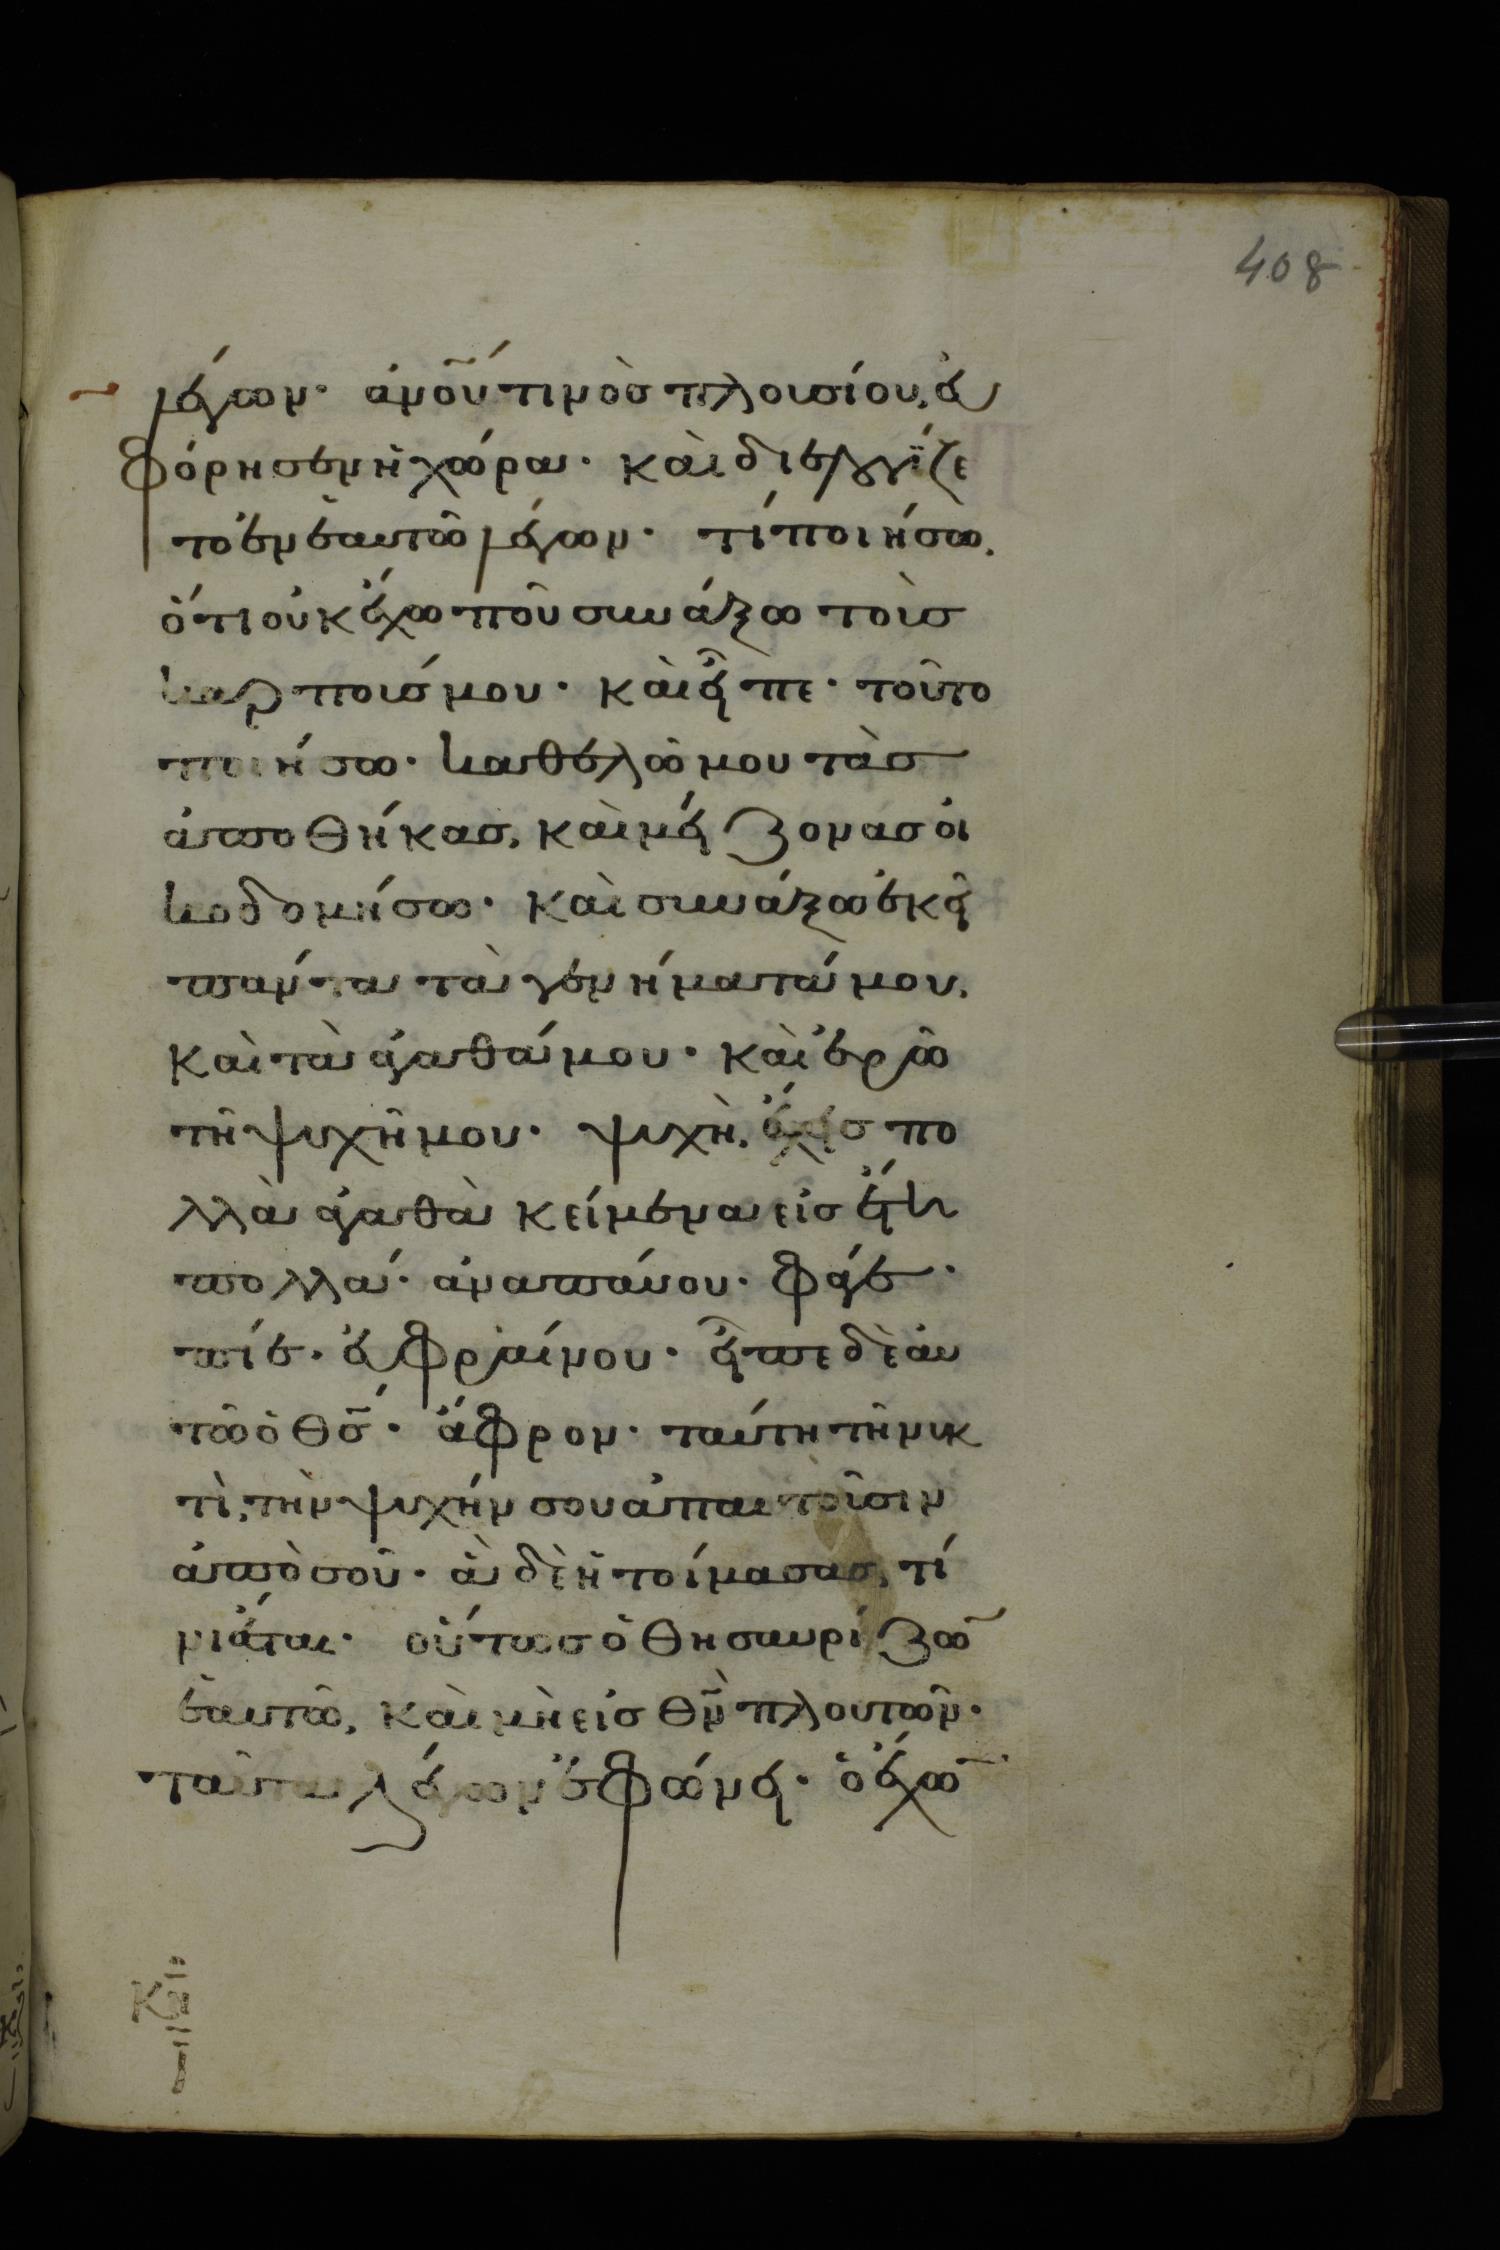 408
λέγων· ἀνου τινὸς πλουσίου, εὐ
φόρησεν ἡ χώρα· καὶ διελογίζε
το ἐν ἑαυτῶ λέγων· τί ποιήσω,
ὅτι οὐκ ἔχω ποῦ συνάξω τοὺς
καρποὺς μου· καὶ εἶπε· τοῦτο
ποιήσω· καθελῶ μου τὰς
ἀποθήκας, καὶ μείζονας οἰ
κοδομήσω· καὶ συνάξω ἐκεῖ
πάντα τὰ γενήματά μου,
καὶ τὰ ἀγαθά μου· καὶ ἐρῶ
τῆ ψυχῆ μου· ψυχὴ, ἔχεις πο
λλὰ ἀγαθὰ κείμενα εἰς ἔτη
πολλά· ἀναπαύου· φάγε·
πίε· εὐφραίνου· εἶπε δὲ αὐ
τῶ ὁ θς· ἄφρον· ταύτη τῆ νυκ
τὶ, τὴν ψυχήν σου ἀπαιτοῦσιν
ἀπὸ σοῦ· ἃ δὲ ἡτοίμασας, τί
νι ἔσται· οὕτως ὁ θησαυρίζων
ἑαυτῶ, καὶ μὴ εἰς θν πλουτῶν·
ταῦτα λέγων ἐφώνει· ὁ ἔχων